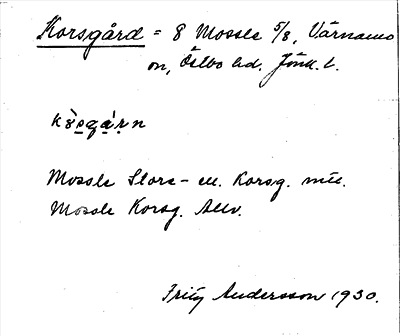 Korsgård = 8 Mossle 5/8, Värnamo
sn, Östbo hd. Jönk. l.
Mossle Stora- el. Korsg.
Mossle Korsg.
Fritz Andersson 1930.